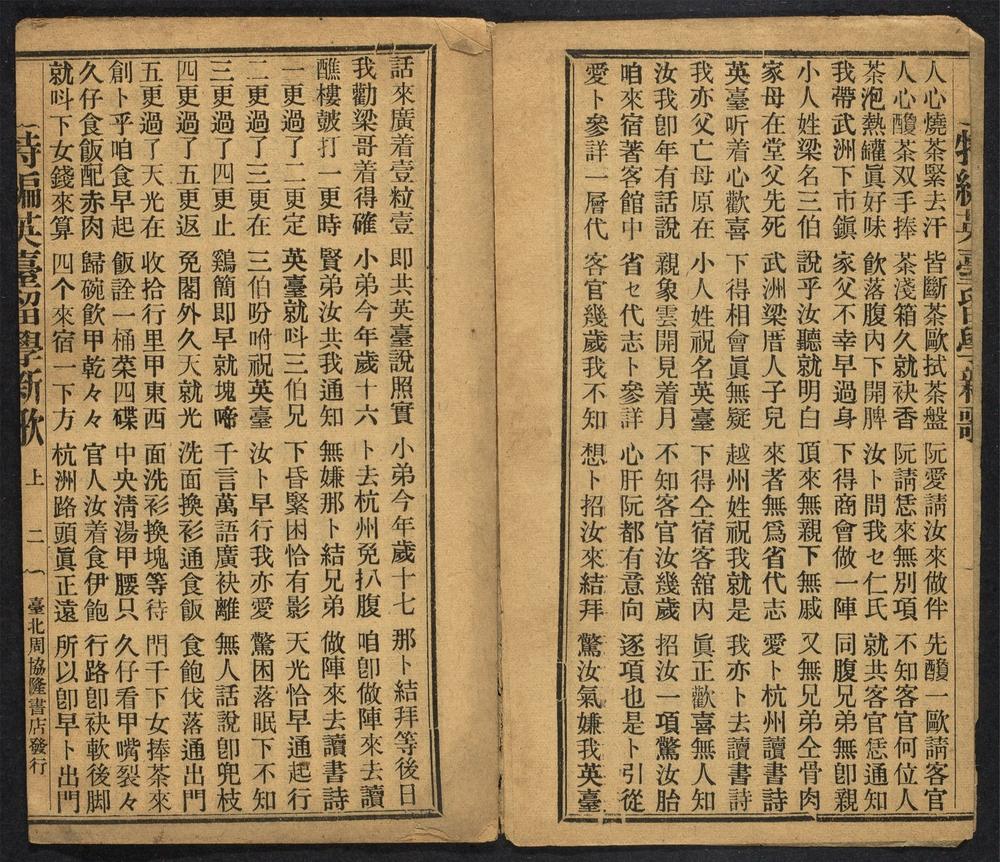 特編英臺留學新歌
人心燒茶緊去汗 皆斷茶歐拭茶盤 阮愛請汝來做伴 先醙一歐請客官
人心醙茶双手捧 茶淺箱久就袂香 阮請恁來無別項 不知客官何位人
茶泡熱罐眞好味 飲落腹內下開脾 汝卜問我セ仁氏 就共客官恁通知
我帶武洲下市鎭 家父不幸早過身 下得商會做一陣 同腹兄弟無卽親
小人姓梁名三伯 說乎汝聽就明白 頂來無親下無戚 又無兄弟仝骨肉
家母在堂父先死 武洲梁厝人子兒 來者無爲省代志 愛卜杭州讀書詩
英臺听着心歡喜 下得相會眞無疑 越州姓祝我就是 我亦卜去讀書詩
我亦父亡母原在 小人姓祝名英臺 下得仝宿客舘內 眞正歡喜無人知
汝我卽年有話說 親象雲開見着月 不知客官汝幾歲 招汝一項驚汝胎
咱來宿著客館中 省セ代志卜參詳 心肝阮都有意向 逐項也是卜引從
愛卜參詳一層代 客官幾歲我不知 想卜招汝來結拜 驚汝氣嫌我英臺
話來廣着壹粒壹 即共英臺說照實 小弟今年歲十七 那卜結拜等後日
我勸梁哥着得確 小弟今年歲十六 卜去杭州免扒腹 咱卽做陣來去讀
醮樓皷打一更時 賢弟汝共我通知 無嫌那卜結兄弟 做陣來去讀書詩
一更過了二更定 英臺就呌三伯兄 下昏緊困恰有影 天光恰早通起行
二更過了三更在 三伯吩咐祝英臺 汝卜早行我亦愛 驚困落眠下不知
三更過了四更止 鷄簡即早就塊啼 千言萬語廣袂離 無人話說卽兜枝
四更過了五更返 免閣外久天就光 洗面換衫通食飯 食飽伐落通出門
五更過了天光在 收拾行里甲東西 面洗衫換塊等待 閂千下女捧茶來
創卜乎咱食早起 飯詮一桶菜四碟 中央淸湯甲腰只 久仔看甲嘴裂々
久仔食飯配赤肉 歸碗飲甲乾々々 官人汝着食伊飽 行路卽袂軟後脚
就呌下女錢來算 四个來宿一下方 杭洲路頭眞正遠 所以卽早卜出門
特編英臺留學新歌 上 二 臺北周協隆書店發行